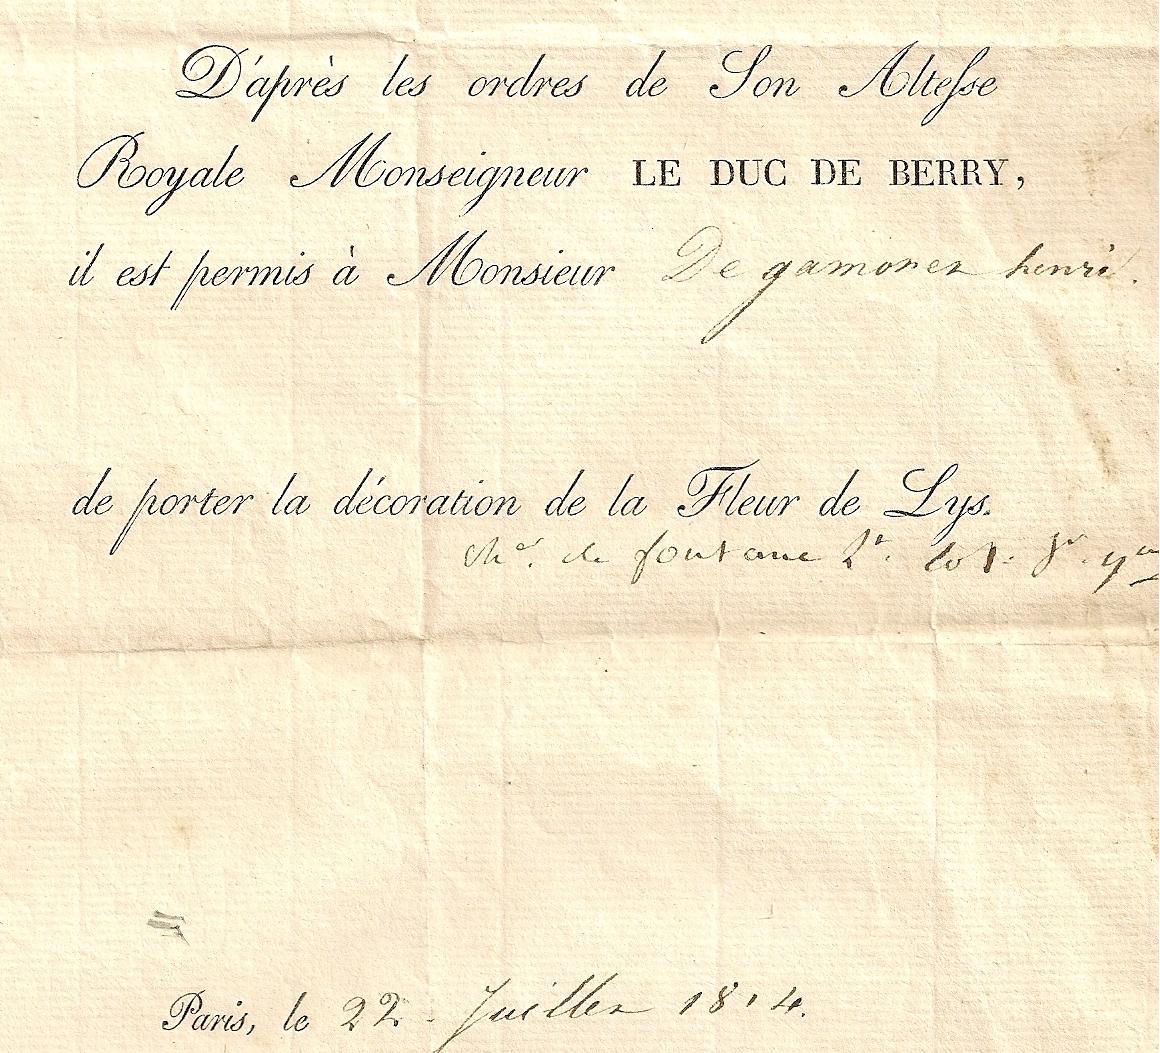 D'après les ordres de Son Altesse
Royale Monseigneur LE DUC DE BERRY,
il est permis à Monsieur De gamorez henri.
de porter la décoration de la Fleur de Lys.
de
Paris, le 22 Juillez 1814.